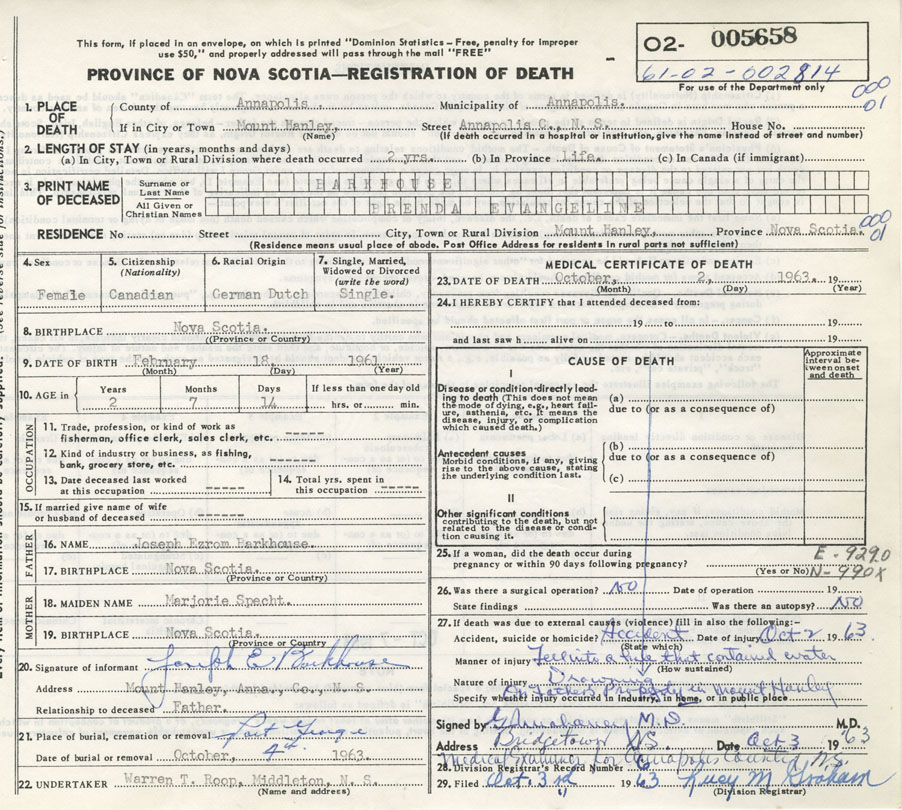 This form, if placed in an envelope, on which is printed "Dominion Statistics – Free, penalty for improper
use $50," and properly addressed will pass through the mail "FREE"
O2- 005658
61-02-002814
For use of the Department only
PROVINCE OF NOVA SCOTIA—REGISTRATION OF DEATH
000
01
1. PLACE OF DEATH
County of Annapolis. Municipality of Annapolis.
If in City or Town Mount Hanley, Street Annapolis C., N. S. House No.
(Name) (If death occurred in a hospital or institution, give the name instead of street and number)
2. LENGTH OF STAY (in years, months and days)
(a) In City, Town or Rural Division where death occurred 2 yrs. (b) In Province life. (c) In Canada (if immigrant)
3. PRINT NAME OF DECEASED
Surname or Last Name PARKHOUSE
All Given or Christian Names BRENDA EVANGELINE
000
01
RESIDENCE No Street City, Town or Rural Division Mount Hanley, Province Nova Scotia.
(Residence means usual place of abode. Post Office Address for residents in rural parts not sufficient)
4. Sex
Female
5. Citizenship (Nationality)
Canadian
6. Racial Origin
German Dutch
7. Single, Married, Widowed or Divorced (write the word)
Single.
8. BIRTHPLACE Nova Scotia.
(Province or Country)
9. DATE OF BIRTH February 18 1961
(Month) (Day) (Year)
10. AGE in Years Months Days If less than one day old
2 7 14 hrs. or min.
OCCUPATION
11. Trade, profession, or kind of work as
fisherman, office clerk, sales clerk, etc. -----
12. Kind of industry or business, as fishing,
bank, grocery store, etc. ------
13. Date deceased last worked
at this occupation -----
14. Total yrs. spent in
this occupation -----
15. If married give name of wife
or husband of deceased ------
FATHER
16. NAME Joseph Ezrom Parkhouse.
17. BIRTHPLACE Nova Scotia.
(Province or Country)
MOTHER
18. MAIDEN NAME Marjorie Specht.
19. BIRTHPLACE Nova Scotia.
(Province or Country)
20. Signature of informant Joseph E Parkhouse
Address Mount Hanley, Anna., Co., N. S.
Relationship to deceased Father.
21. Place of burial, cremation or removal Port George
Date of burial or removal October, 4th. 1963.
22. UNDERTAKER Warren T. Roop, Middleton, N. S.
(Name and address)
MEDICAL CERTIFICATE OF DEATH
23. DATE OF DEATH October, 2, 1963. 19
(Month) (Day) (Year)
24. I HEREBY CERTIFY that I attended deceased from:
19 to 19
and last saw h alive on 19
CAUSE OF DEATH
Approximate interval between onset and death
I
Disease or condition directly leading to death (This does not mean the mode of dying, e.g., heart failure, asthenia, etc. It means the disease, injury, or complication which caused death.)
(a)
due to (or as a consequence of)
Antecedent causes
Morbid conditions, if any, giving rise to the above cause, stating the underlying condition last.
(b)
due to (or as a consequence of)
(c)
II
Other significant conditions
contributing to the death, but not related to the disease or condition causing it.
25. If a woman, did the death occur during
pregnancy or within 90 days following pregnancy?
(Yes or No)
E-9290
N-990X
26. Was there a surgical operation? No Date of operation 19
State findings Was there an autopsy? No
27. If death was due to external causes (violence) fill in also the following:-
Accident, suicide or homicide? Accident Date of injury Oct 2 19 63.
(State which)
Manner of injury Fell into a hole that contained water
(How sustained)
Nature of injury Drowning
On Fathers Property in Mount Hanley
Specify whether injury occurred in industry, in home, or in public place
Signed by M.D. M.D.
Address Bridgetown N.S. Date Oct 3 19 63
Medical Examiner for Annapolis County N.S.
28. Division Registrar's Record Number 6
29. Filed Oct. 3rd 19 63 Lucy M Graham
(Division Registrar)